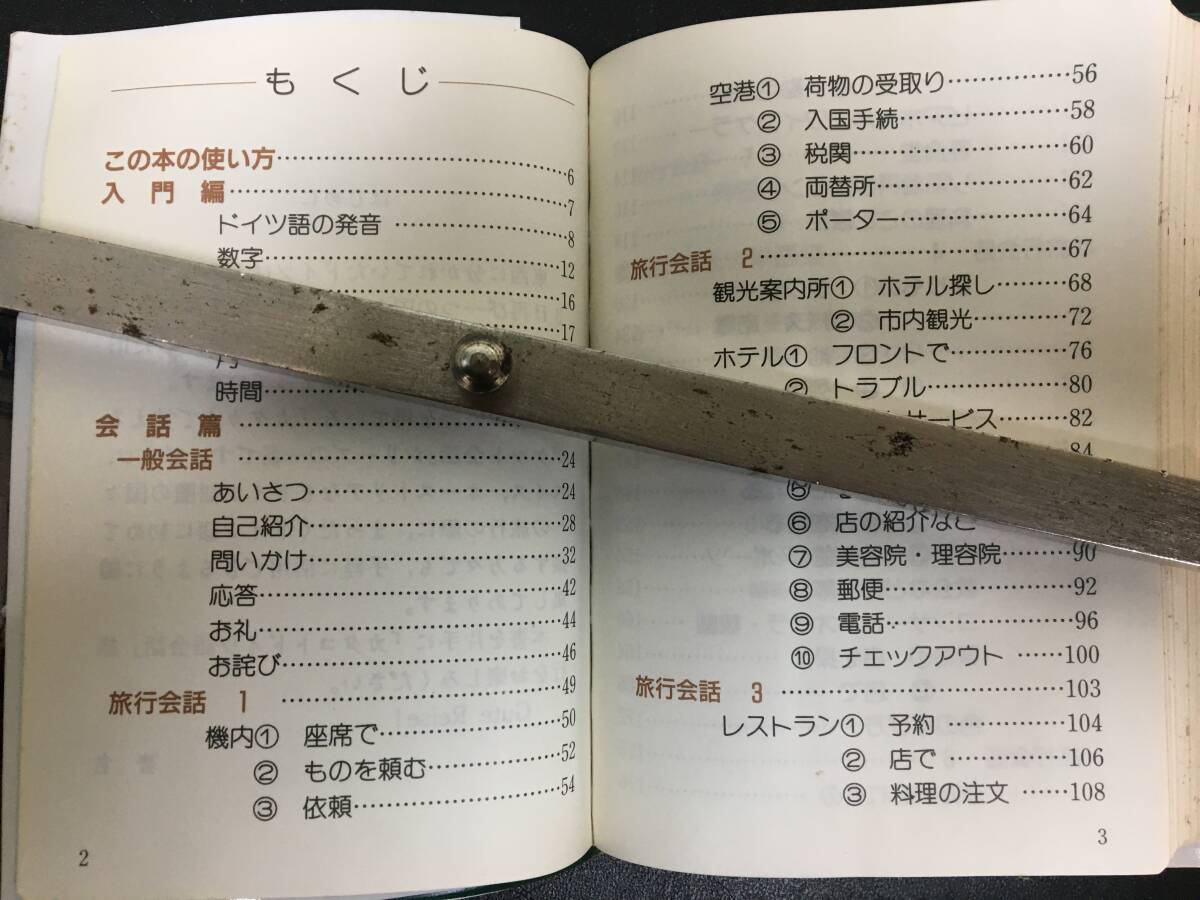 もくじ
この本の使い方……6
入門編……7
ドイツ語の発音……8
数字……12
……16
……17
月
時間……
会話篇……
一般会話……24
あいさつ……24
自己紹介……28
問いかけ……32
応答……42
お礼……44
お詫び……46
旅行会話 1……49
機内① 座席で……50
② ものを頼む……52
③ 依頼……54
2
空港① 荷物の受取り……56
② 入国手続……58
③ 税関……60
④ 両替所……62
⑤ ポーター……64
旅行会話 2……67
観光案内所① ホテル探し……68
② 市内観光……72
ホテル① フロントで……76
② トラブル……80
サービス……82
84
⑤
⑥ 店の紹介など
⑦ 美容院・理容院……90
⑧ 郵便……92
⑨ 電話……96
⑩ チェックアウト……100
旅行会話 3……103
レストラン① 予約……104
② 店で……106
③ 料理の注文……108
3